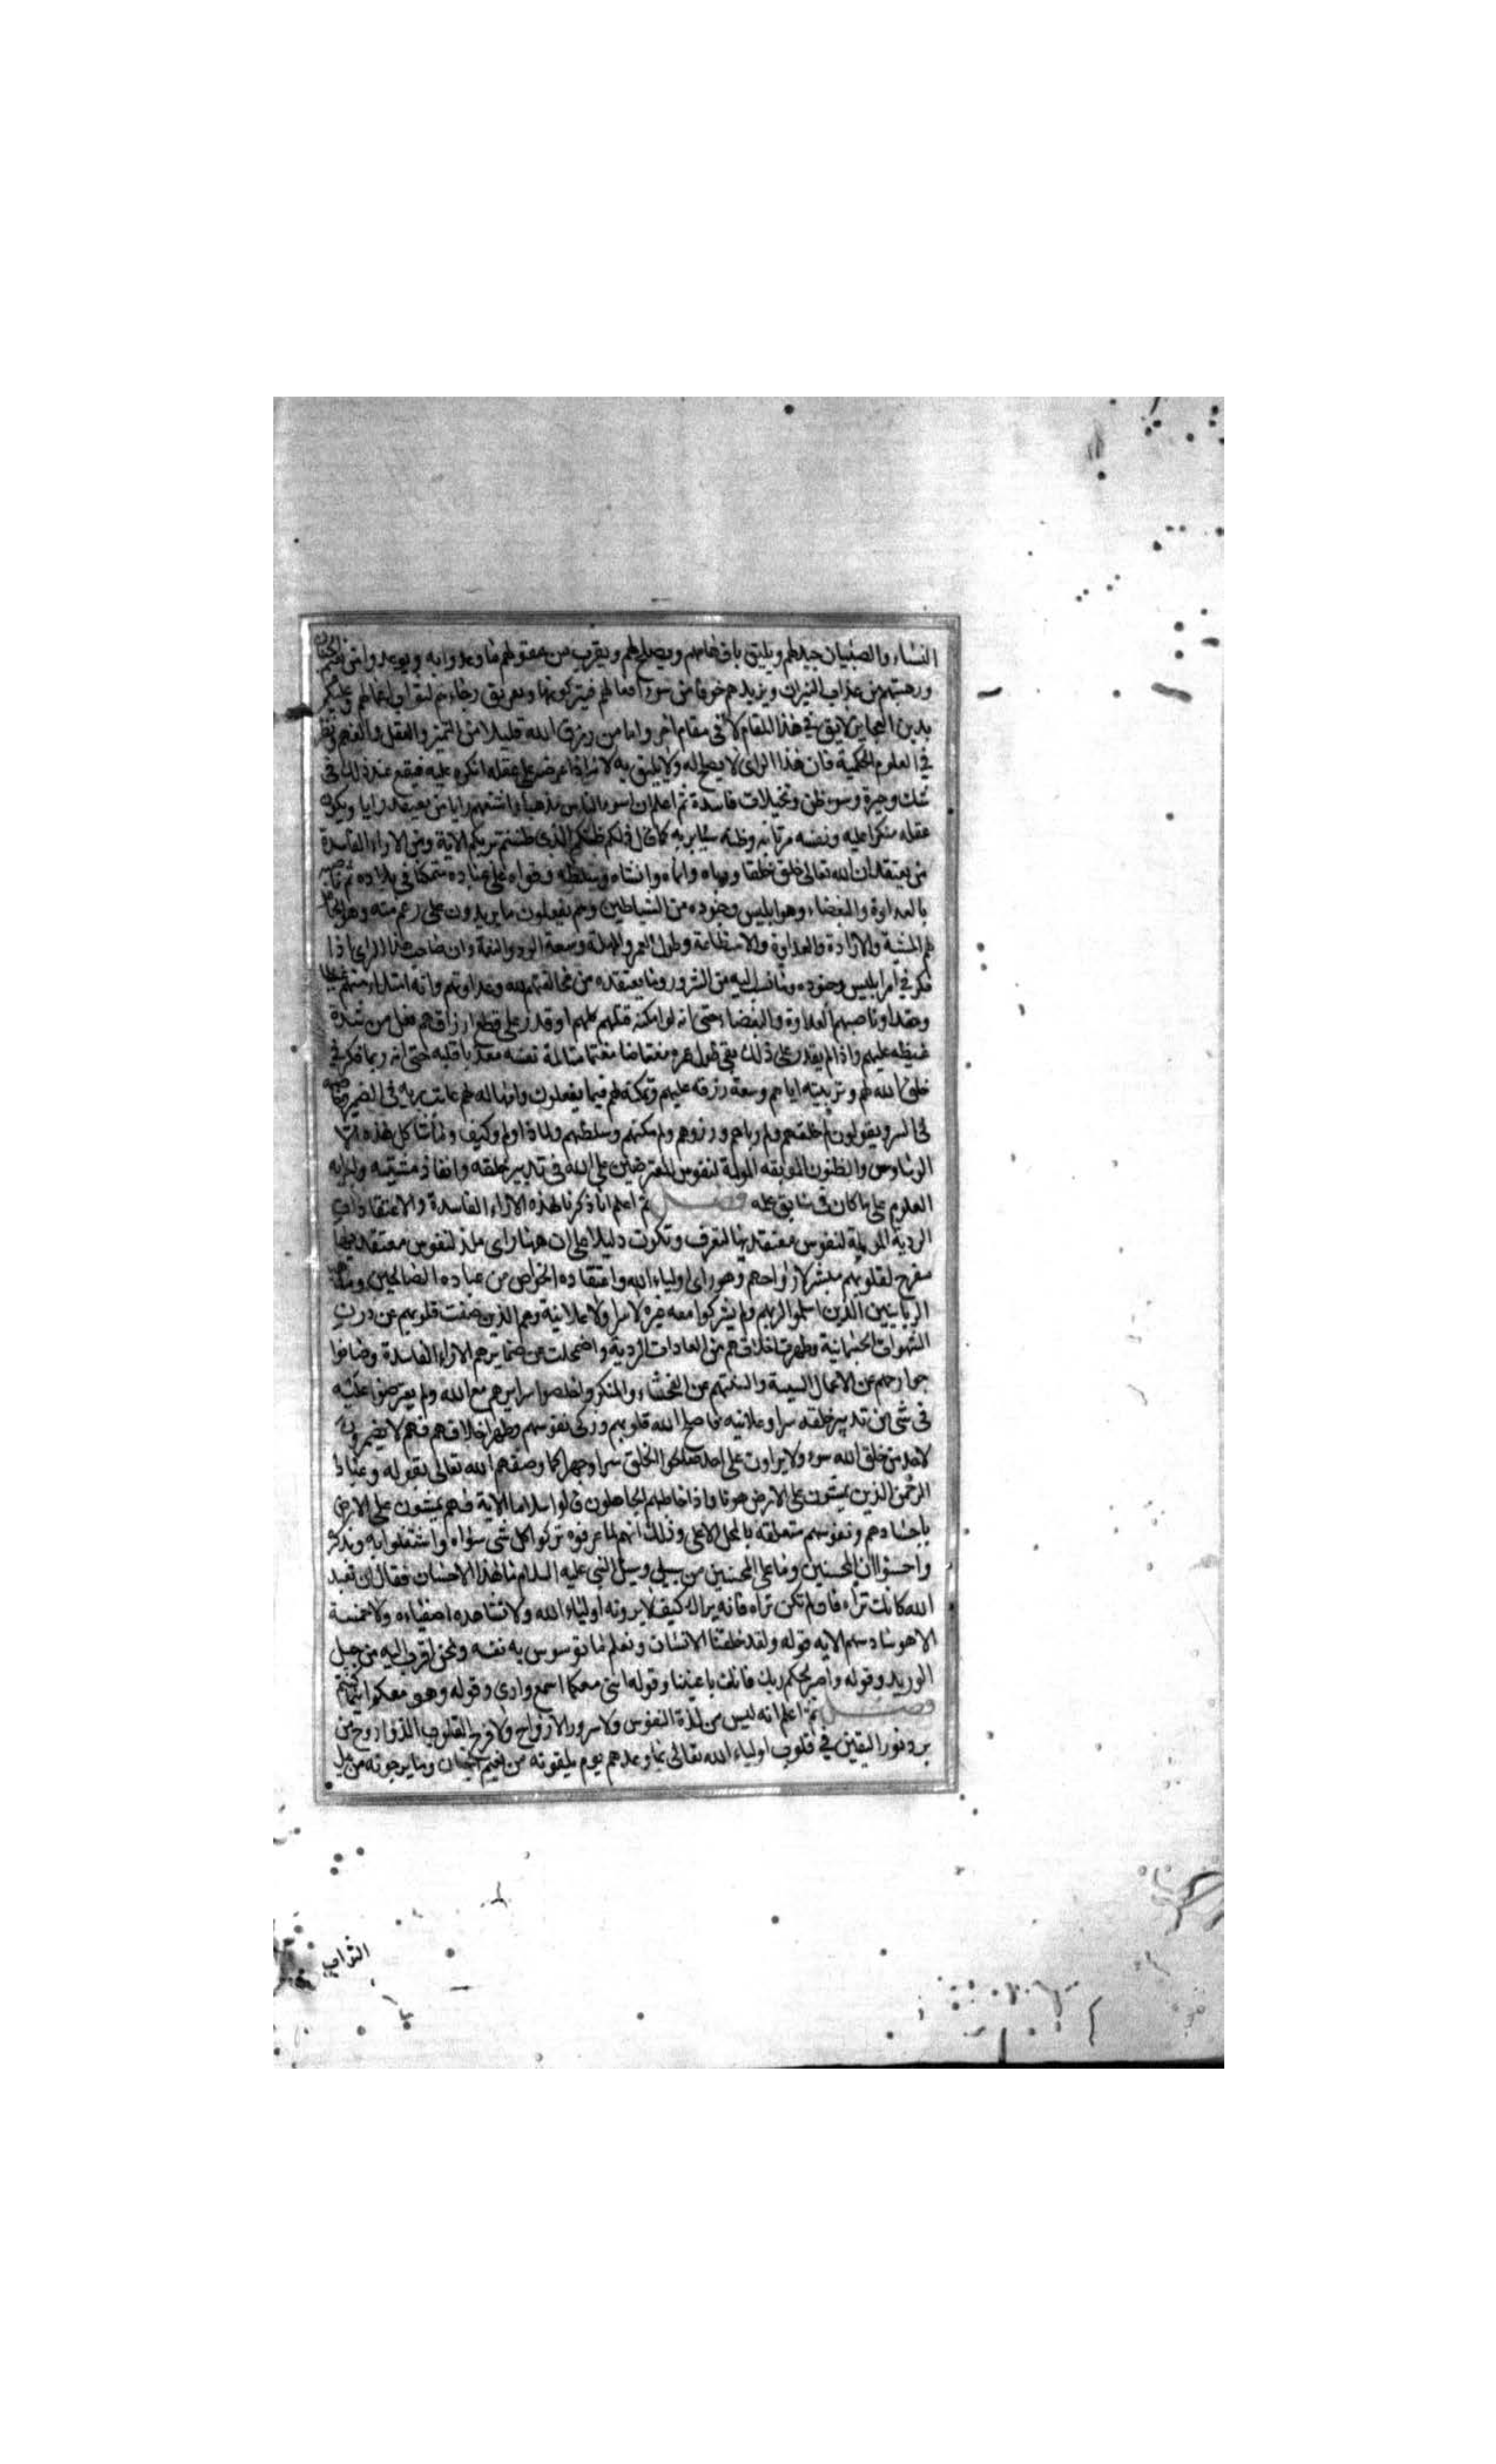 النساء والصبيان جيد لهم ويليق بافهامهم ويصلح لهم ويقرب من عقولهم ما وعدوا به ويوعدوا من نعيم الجنان
ورهبتهم من عذاب النيران ويزيدهم خوفا من سوء افعالهم فيتركونها رجاءهم لثواب اعمالهم وعليكم
بدين العجايز لايق في هذا المقام لا في مقام اخر واما من رزق الله قليلا من التميز والعقل والفهم ونظر
في العلوم الحكمية فان هذا الراى لا يصلح له ولا يليق به لانه اذا عرضه على عقله انكره عليه فيقع عند ذلك فى
شك وحيرة وسوء ظن وتخيلات فاسدة ثم اعلم ان اسوء الناس مذهبا واشنعهم رايا من يعتقد رايا ويكون
عقله منكرا عليه ونفسه مرتابة وظنه سيا بربه كما قال ذلكم ظنكم الذى ظننتم بربكم الاية ومن الاراء الفاسدة
من يعتقد ان الله تعالى خلق خلقا ورباه وانماه وانشاه وسلطه وقواه على عباده متمكنا فى بلاده ثم ناصبه
بالعداوة والبغضاء وهو ابليس وجنوده من الشياطين وهم يفعلون ما يريدون على رغم منه وهو الجاعل
لهم المشية والارادة والعداوة والاستطاعة وطول العمر والمهلة وسعة الرزق والنعمة وان صاحب هذا الراى اذا
فكر في امر ابليس وجنوده وما نسب اليه من الشرور وما يعتقده من مخالفتهم لله وعداوتهم وانه امتلاء منهم غيظا
وحقدا وناصبهم العداوة والبغضاء حتى انه لو امكنه قتلهم كلهم او قدر على قطع ارزاقهم فعل من شدة
غيظه عليهم واذا لم يقدر على ذلك بقى طول عمره مغتاضا مغتما متالمة نفسه معذبا قلبه حتى انه ربما فكر في
خلق الله لهم وتربيته اياهم وسعة رزقه عليهم وتمكنه لهم فيما يفعلون وامهاله لهم عاتب ربه فى الضمير وخاصمه
فى السر ويقولون لم خلقهم ولم رباهم ورزقهم ولم مكنهم وسلطهم ولماذا ولم وكيف وما شاكل هذه
الوساوس والظنون الموبقه المولمة لنفوس المعترضين على الله فى تدبير خلقه وانفاذ مشيته واجرايه
العلوم على ما كان فى سابق علمه فصل ثم اعلم انا ذكرنا هذه الاراء الفاسدة والاعتقادات
الردية المولمة لنفوس معتقديها لتعرف وتكون دليلا على ان هاهنا راى ملذ لنفوس معتقديها
مفرح لقلوبهم مبشر لارواحهم وهو راى اولياء الله واعتقاده الخواص من عباده الصالحين ومذهب
الربانيين الذين اسلموا لربهم ولم يشركوا معه غيره لا سرا ولا علانية وهم الذين صفت قلوبهم من درن
الشهوات الجسمانية وطهرت اخلاقهم من العادات الردية واضمحلت عن ضمايرهم الاراء الفاسدة وصانوا
جوارحهم عن الاعمال السيية والسنتهم عن الفحشاء والمنكر واخلصوا سرايرهم مع الله ولم يعترضوا عليه
فى شى من تدبير خلقه سرا وعلانيه فاصلح الله قلوبهم وزكى نفوسهم وطهر اخلاقهم فهم لا يضمرون
لاحد من خلق الله سوء ولا يراون على احد صلحوا الخلق سرا وجهرا كما وصفهم الله تعالى بقوله وعباد
الرحمن الذين يمشون على الارض هونا واذا خاطبهم الجاهلون قالوا سلاما الاية فهم يمشون على الارض
باجسادهم ونفوسهم متعلقه بالمحل الاعلى وذلك انهم لما عرفوه تركوا كل شى سواه واشتغلوا به وبذكره
واحسنوا ان المحسنين وما على المحسنين من سبيل وسئل النبي عليه السلام ما هذا الاحسان فقال ان تعبد
الله كانك تراه فان لم تكن تراه فانه يراك كيف لا يرونه اولياء الله ولا تشاهده اصفياءه ولا خمسة
الا هو سادسهم الايه قوله ولقد خلقنا الانسان ونعلم ما توسوس به نفسه ونحن اقرب اليه من حبل
الوريد وقوله واصبر لحكم ربك فانك باعيننا وقوله اننى معكما اسمع وارى وقوله وهو معكم اينما كنتم
فصل ثم اعلم انه ليس من لذة النفوس ولا سرور الارواح ولا فرح القلوب الذ ولا روح من
برد نور اليقين في قلوب اولياء الله تعالى بما وعدهم يوم يلقونه من نعيم الجنان وما يرجونه من نيل
الثواب